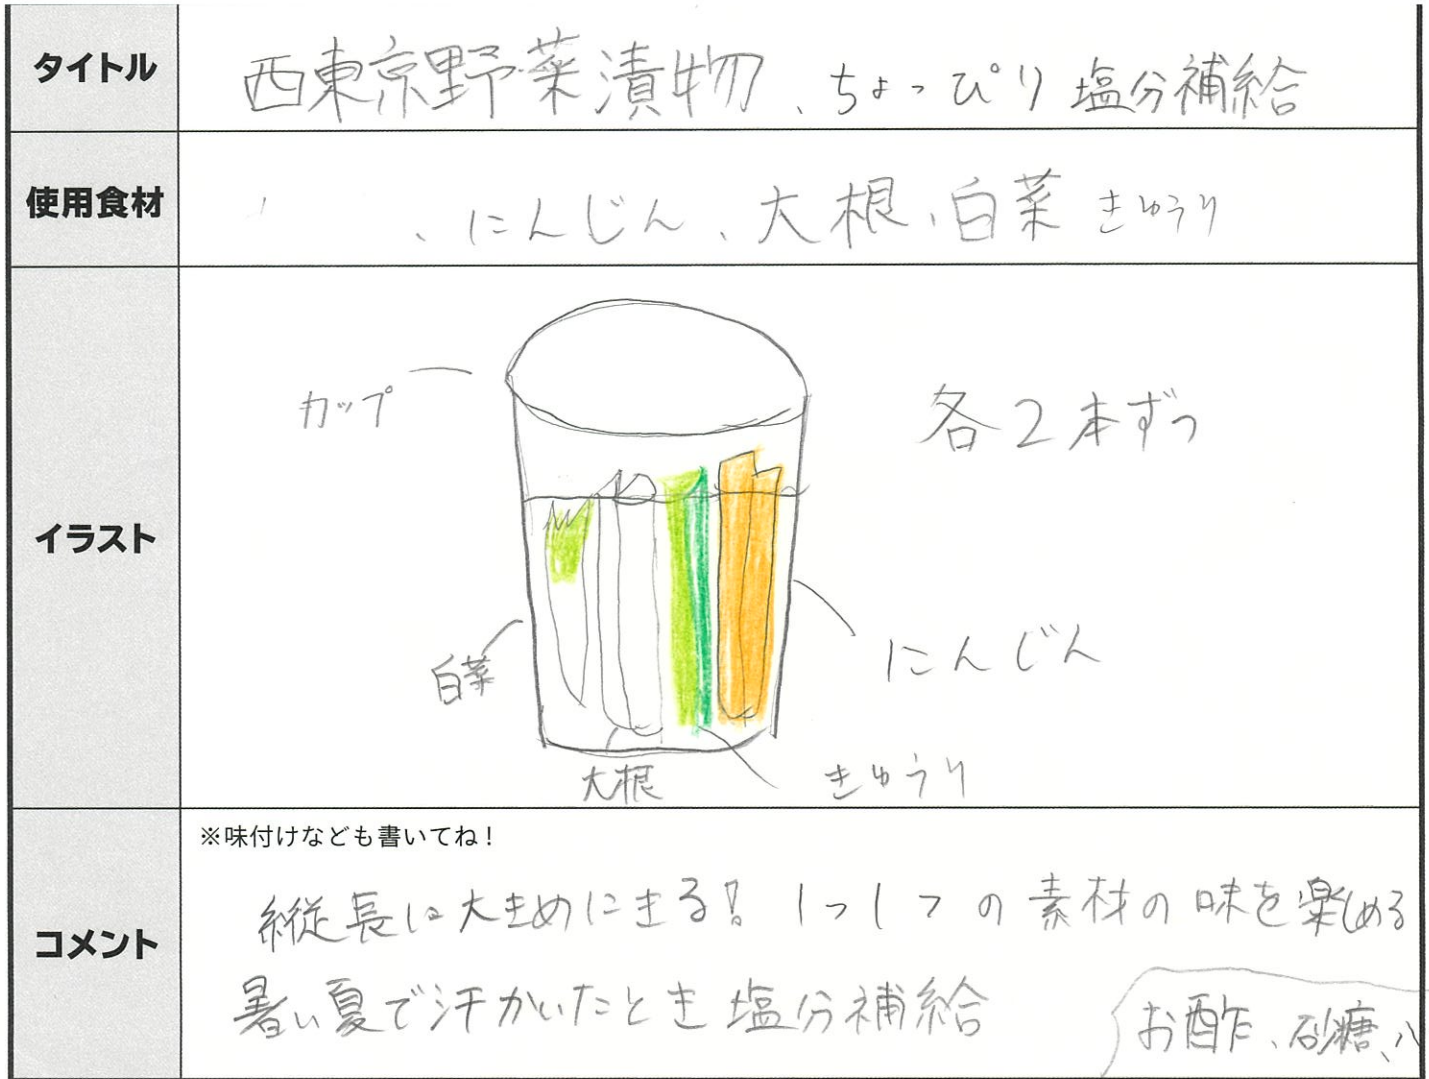 タイトル
西東京野菜漬物、ちょっぴり塩分補給
使用食材
、にんじん、大根、白菜 きゅうり
イラスト
カップ
各2本ずつ
白菜
にんじん
大根
きゅうり
コメント
※味付けなども書いてね!
縦長に大きめにきる! 1つ1つの素材の味を楽しめる
暑い夏で汗かいたとき塩分補給
お酢、砂糖、